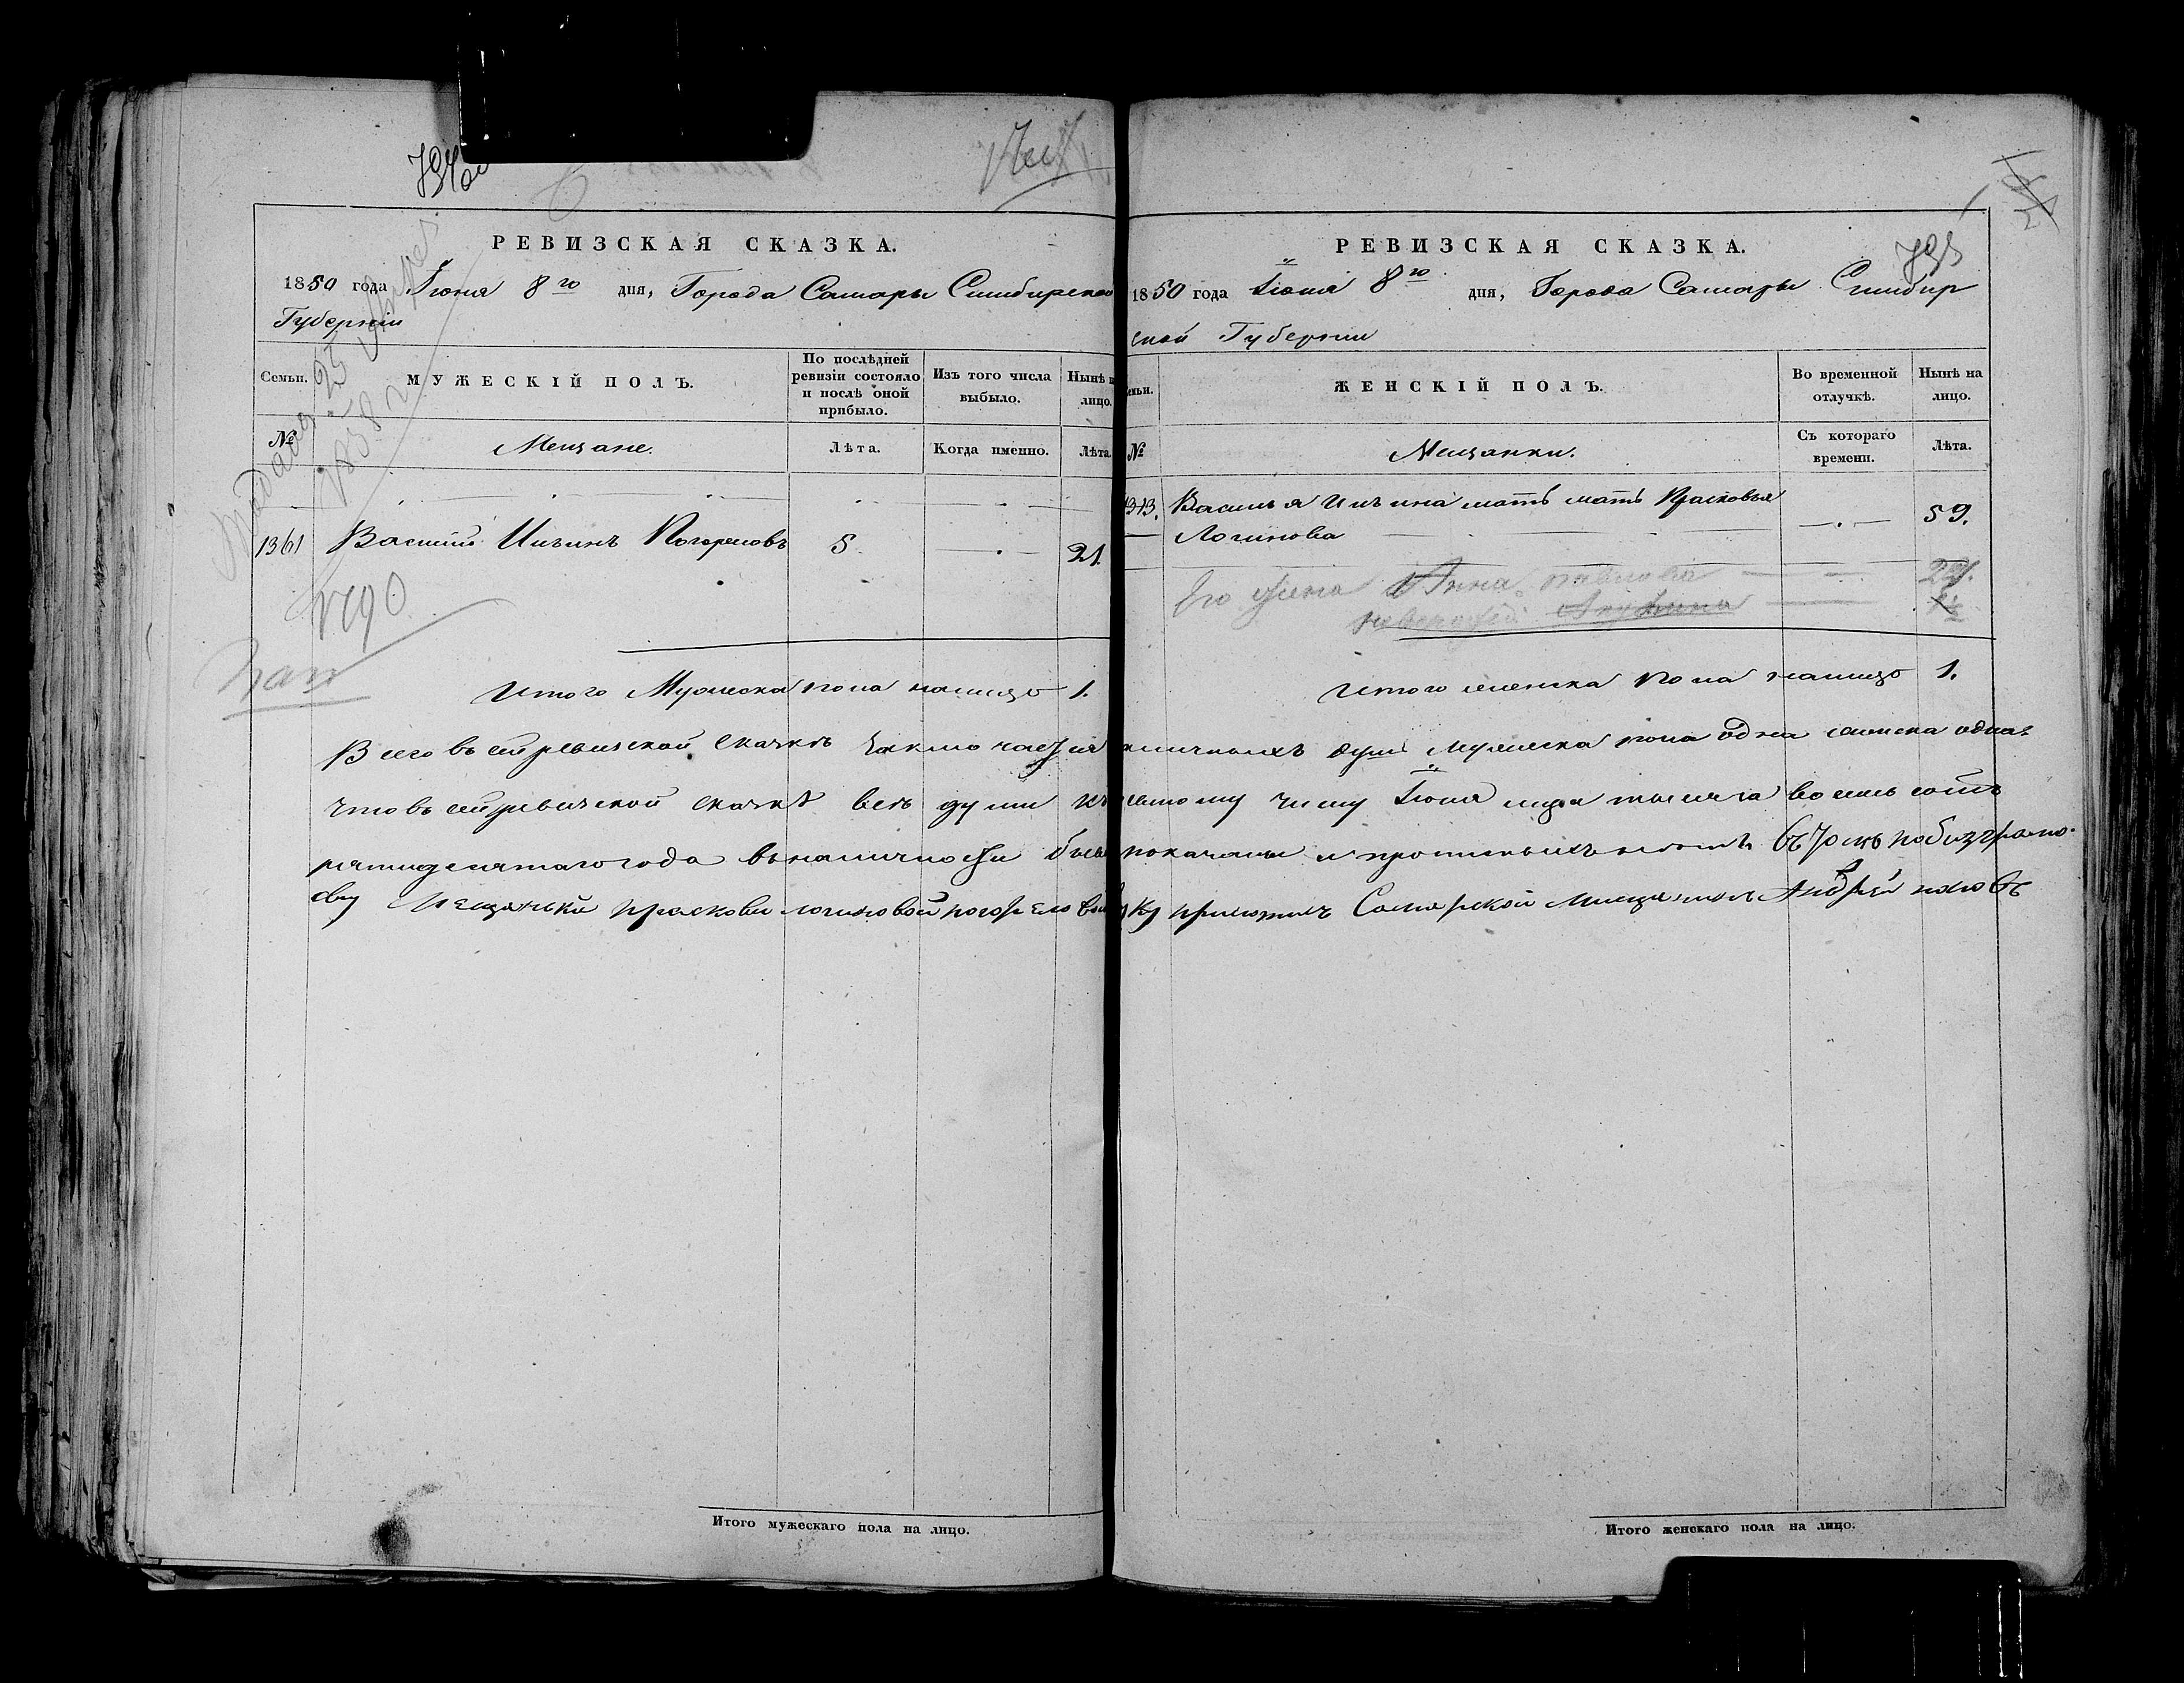 РЕВИЗСКАЯ СКАЗКА.
1850 года Іюня 8го дня, Города Самары Симбирской
Губерніи
Семьи.
МУЖЕСКІЙ ПОЛЪ.
По послѣдней ревизіи состояло и послѣ оной прибыло.
Изъ того числа выбыло.
Нынѣ н лицо.
№
Мещане.
Лѣта.
Когда именно.
Лѣта.
1361 Василій Ильинъ Погореловъ 5. 21.
1858
1790
Итого Мужеска пола налицо 1.
РЕВИЗСКАЯ СКАЗКА.
795
1850 года Іюня 8го дня, Города Самары Симбир
ской Губерніи
ЖЕНСКІЙ ПОЛЪ.
Во временной отлучкѣ.
Нынѣ на лицо.
№
Мещанки.
Съ котораго времени.
Лѣта.
Василья Ильина мать мать Прасковья
Логинова 59.
Его жена Анна
Итого женска пола налицо 1.
Всего въ сей ревизской сказкѣ заключается наличныхъ душъ мужеска пола одна женска одна.
Что въ сей ревизской сказкѣ всѣ души къ числу Іюня тысяча восемь сотъ
пятидесятаго года въ наличности показаны и прописныхъ нѣтъ въ томъ по безграмот
ству Мещанки Прасковьи Логиновой Погореловой руку приложилъ Самарской Мещанинъ Андрей
Итого мужескаго пола на лицо.
Итого женскаго пола на лицо.